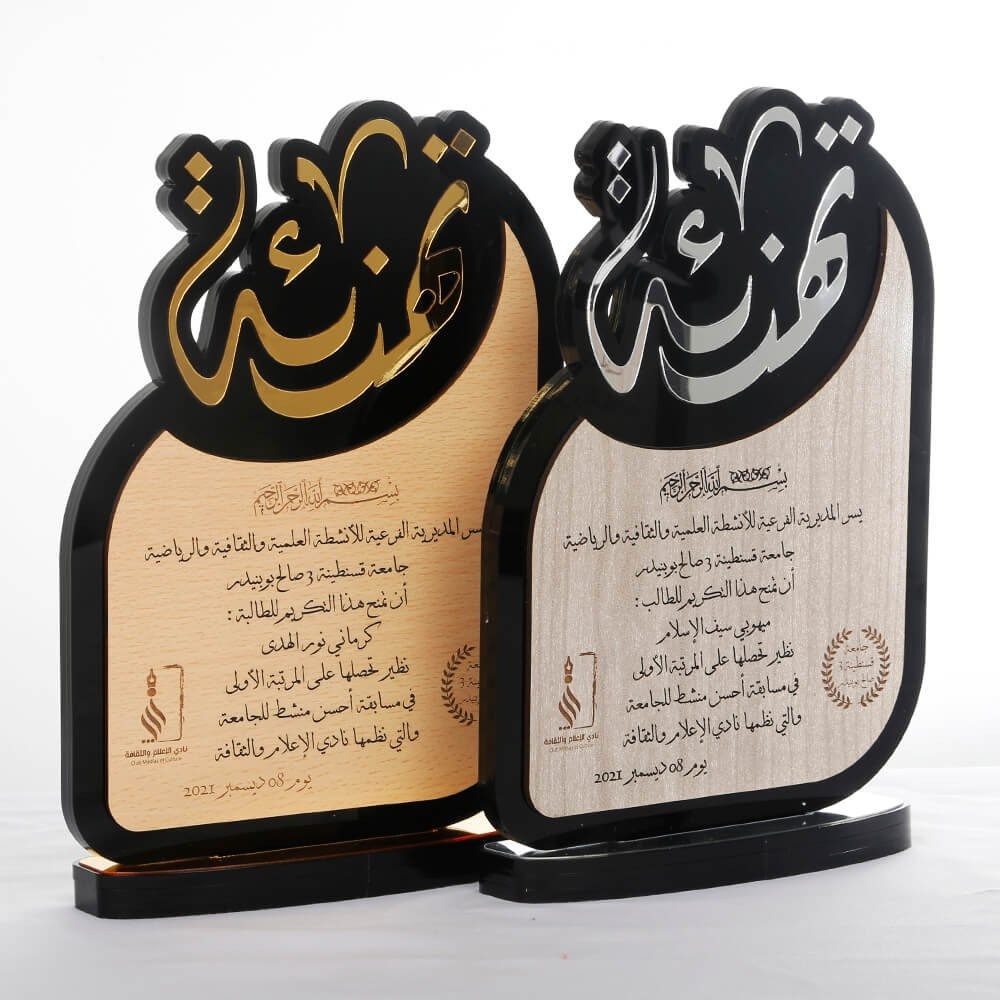 تهنئة
بسم الله الرحمن الرحيم
يسر المديرية الفرعية للأنشطة العلمية والثقافية والرياضية
جامعة قسنطينة 3 صالح بوبنيدر
أن تمنح هذا التكريم للطالب :
ميهوبي سيف الإسلام
نظير تحصلها على المرتبة الأولى
في مسابقة أحسن منشط للجامعة
والتي نظمها نادي الإعلام والثقافة
يوم 08 ديسمبر 2021
نادي الإعلام والثقافة
Club Médias et Culture
جامعة
قسنطينة 3
صالح بوبنيدر
تهنئة
بسم الله الرحمن الرحيم
يسر المديرية الفرعية للأنشطة العلمية والثقافية والرياضية
جامعة قسنطينة 3 صالح بوبنيدر
أن تمنح هذا التكريم للطالبة :
كرماني نور الهدى
نظير تحصلها على المرتبة الأولى
في مسابقة أحسن منشط للجامعة
والتي نظمها نادي الإعلام والثقافة
يوم 08 ديسمبر 2021
نادي الإعلام والثقافة
Club Médias et Culture